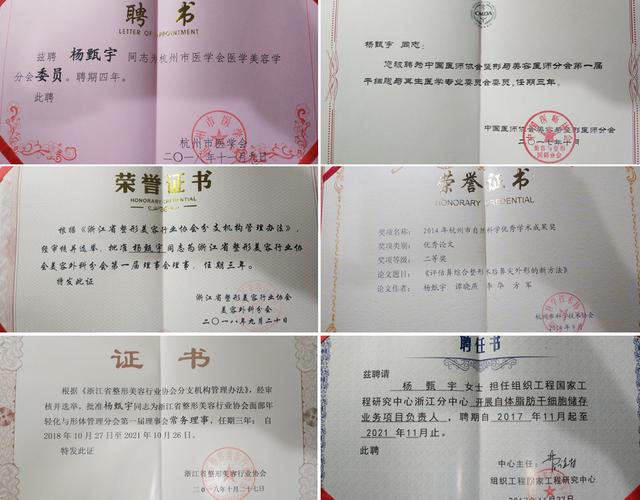 聘书
LETTER OF APPOINTMENT
兹聘 杨甄宇 同志为杭州市医学会医学美容学
分会委员。聘期四年。
此聘
杭州市医学会
二〇一八年十一月九日
CMDA
杨甄宇 同志:
您被聘为中国医师协会整形与美容医师分会第一届
干细胞与再生医学专业委员会委员,任期三年。
中国医师协会美容与整形医师分会
二〇一七年十月
荣誉证书
HONORARY CREDENTIAL
根据《浙江省整形美容行业协会分支机构管理办法》,
经审核并选举,批准 杨甄宇 同志为浙江省整形美容行业协
会美容外科分会第一届理事会理事,任期三年。
特发此证
浙江省整形美容行业协会
美容外科分会
二〇一八年九月二十日
荣誉证书
HONORARY CREDENTIAL
奖项名称: 2014年杭州市自然科学优秀学术成果奖
奖项类别: 优秀论文
奖项等级: 二等奖
论文题目: 《评估鼻综合整形术后鼻尖外形的新方法》
论文作者: 杨甄宇 谭晓燕 李华 方军
杭州市科学技术协会
证书
根据《浙江省整形美容行业协会分支机构管理办法》,经审
核并选举,批准杨甄宇同志为浙江省整形美容行业协会面部年
轻化与形体管理分会第一届理事会常务理事,任期三年:自
2018年10月27日至2021年10月26日。
特发此证
浙江省整形美容行业协会
二〇一八年十月二十七日
聘任书
兹聘请
杨甄宇 女士 担任组织工程国家工
程研究中心浙江分中心 开展自体脂肪干细胞储存
业务项目负责人 ,聘期自 2017 年11月起至
2021 年11月止。
此聘
中心主任:
组织工程国家工程研究中心